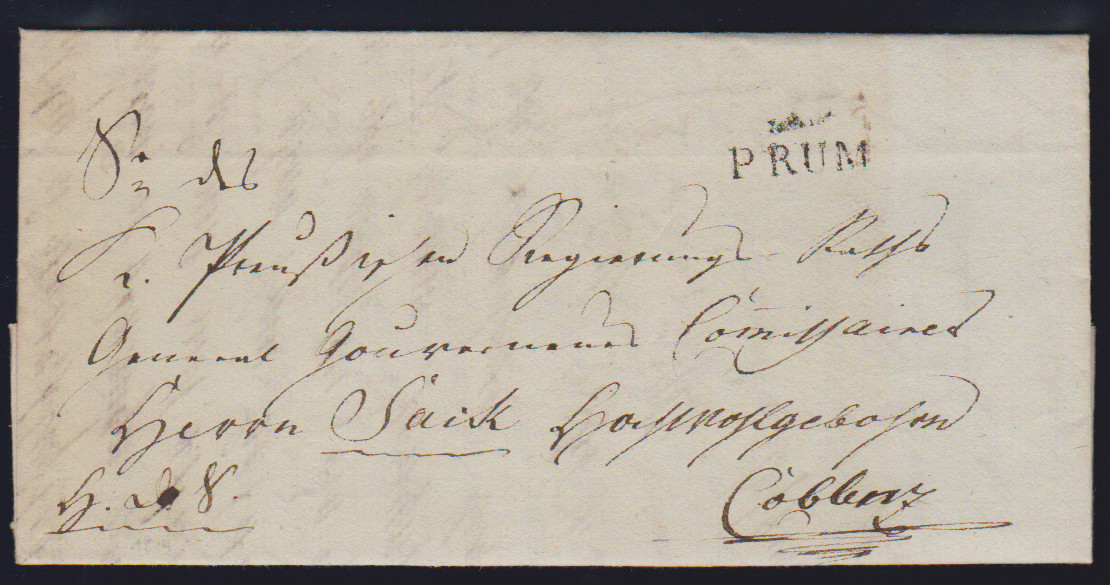 PRUM
Sr des
K. Preußischen Regierungs-Raths
General Gouvernements Commissaires
Herrn Sack Hochwohlgeboren
H. d. S.
Coblenz
1814